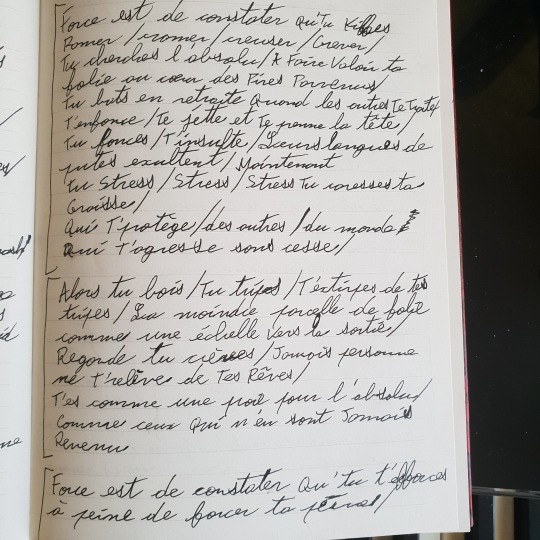 Force est de constater qu'Tu kiffes
Ramer / cramer / creuser / Crever /
Tu cherches l'absolu / A Faire Valoir ta
folie au cœur des Pires Parvenus /
Tu bats en retraite Quand les autres Te
T'enfonce / Te jette et Te prenne la tête /
Tu fonces / T'insulte / Leurs langues de
putes exultent / Maintenant
Tu Stress / Stress / Stress Tu caresses ta
Graisse /
Qui T'protège / des autres / du monde
Qui T'agresse sans cesse /
Alors tu bois / Tu tripes / T'extirpes de tes
tripes / La moindre parcelle de folie
comme une échelle vers la sortie /
Regarde tu crèves / Jamais personne
ne t'relève de Tes Rêves /
T'es comme une proie pour l'absolu /
Comme ceux Qui n'en sont Jamais
Revenu
Force est de constater Qu'tu t'efforces
à peine de forcer ta